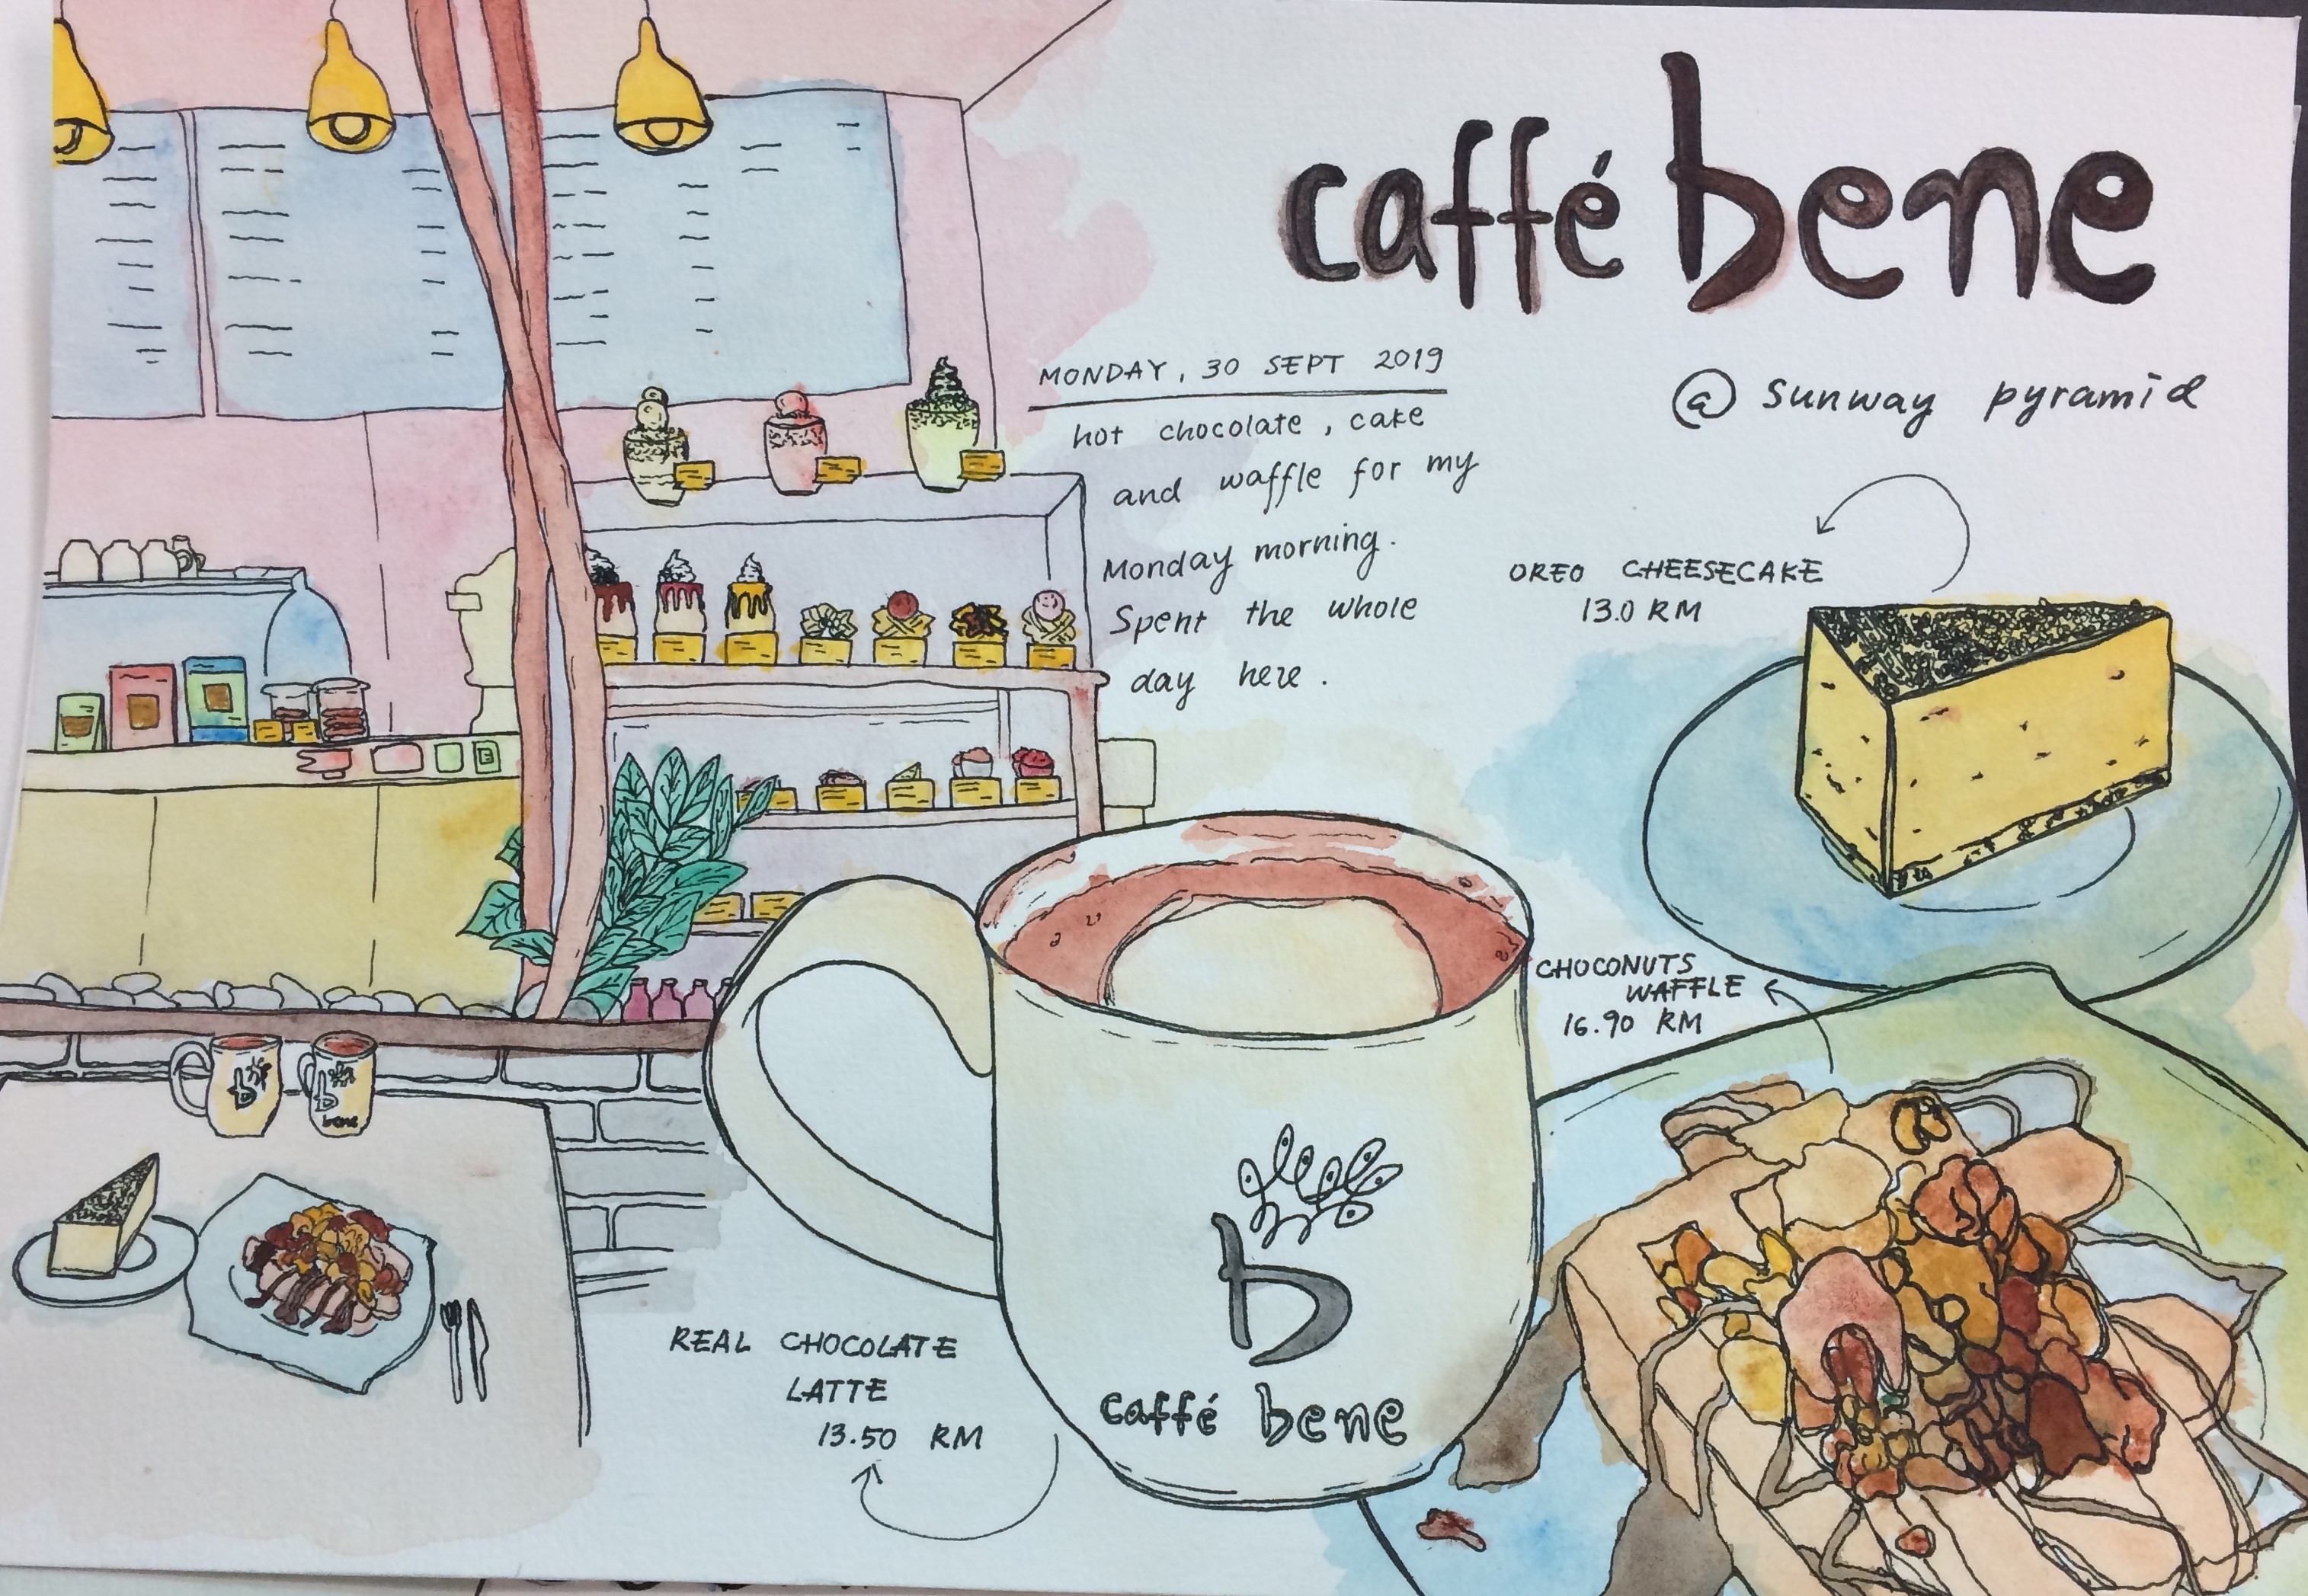 caffé bene
@ sunway pyramid
MONDAY, 30 SEPT 2019
hot chocolate, cake
and waffle for my
Monday morning.
Spent the whole
day here.
OREO CHEESECAKE
13.0 RM
CHOCONUTS
WAFFLE
16.90 RM
REAL CHOCOLATE
LATTE
13.50 RM
b
caffé bene
b
b
bene